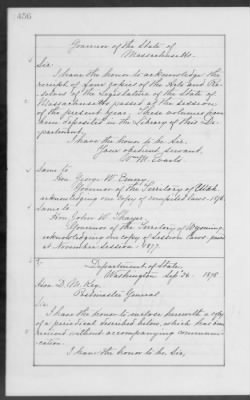 456
Governor of the State of
Massachusetts.
Sir:
I have the honor to acknowledge the
receipt of four copies of the Acts and Re-
solves of the Legislature of the State of
Massachusetts passed at the session
of the present year. These volumes have
been deposited in the Library of this De-
partment.
I have the honor to be Sir,
Your obedient servant,
Wm M. Evarts
Same to
Hon. George W. Emery,
Governor of the Territory of Utah.
acknowledging one copy of compiled laws. 1876.
Same to
Hon. John W. Thayer,
Governor of the Territory of Wyoming
acknowledging one copy of session laws, passed
at November session. 1877.
Department of State,
Washington Sep' 24. 1878
Hon. D. M. Key,
Postmaster General.
Sir:
I have the honor to enclose herewith a copy
of a periodical described below, which has been
received without accompanying communi-
cation.
I have the honor to be, Sir,